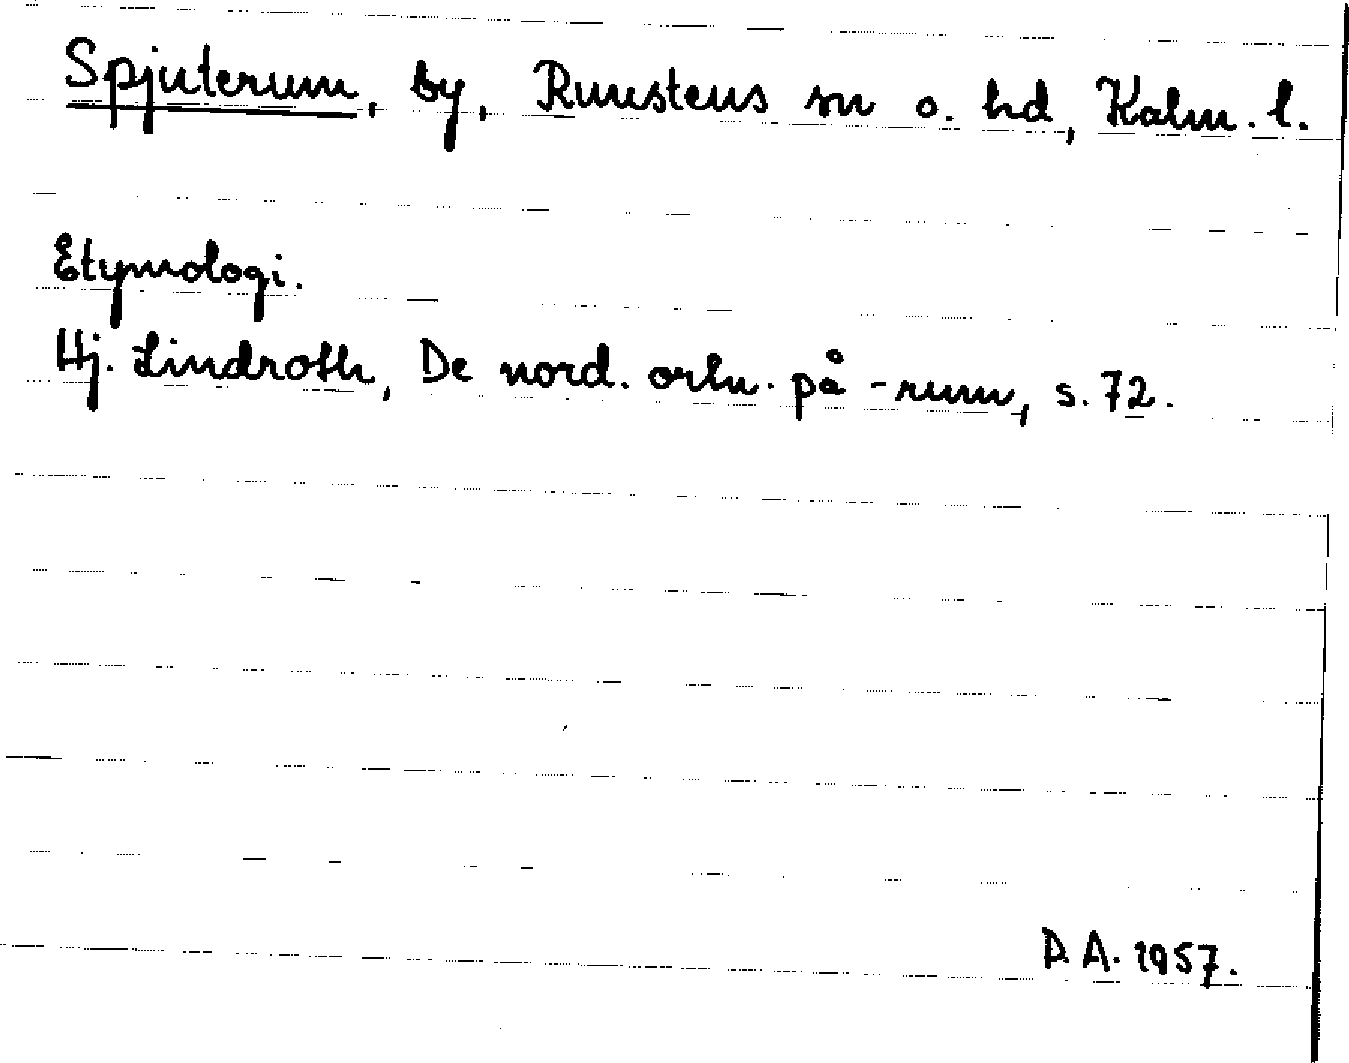 Spjuterum, by, Runstens sn o. hd, Kalm. l.
Etymologi.
Hj. Lindroth, De nord. ortn. på -rum, s. 72.
D A. 1957.